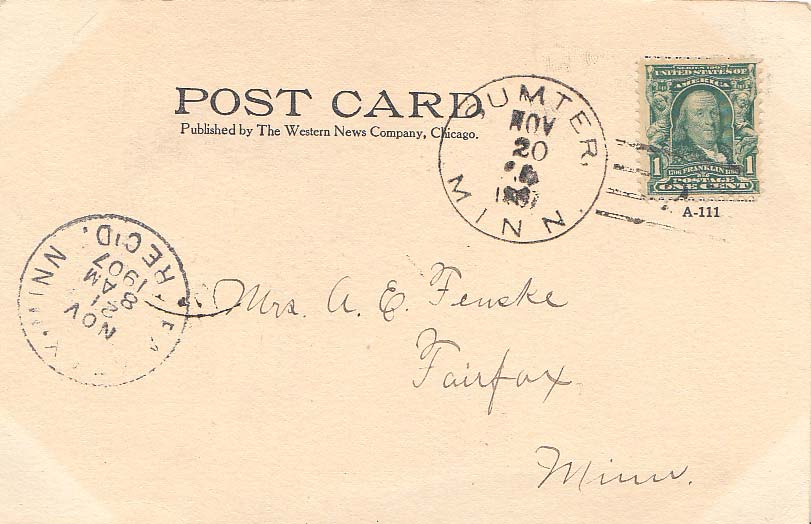 POST CARD
Published by The Western News Company, Chicago.
SUMTER,
NOV
20
MINN.
SERIES 1902
UNITED STATES OF
AMERICA
1 1706 FRANKLIN 1790 1
POSTAGE
ONE CENT
A-111
REC'D.
NOV
21
8 AM
1907
MINN
Mrs. A. E. Fenske
Fairfax
Minn.